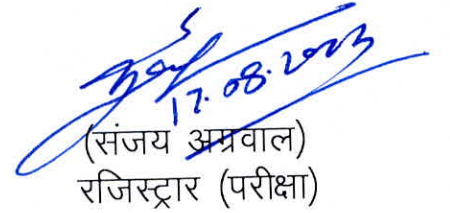 17.08.2023
(संजय अग्रवाल)
रजिस्ट्रार (परीक्षा)